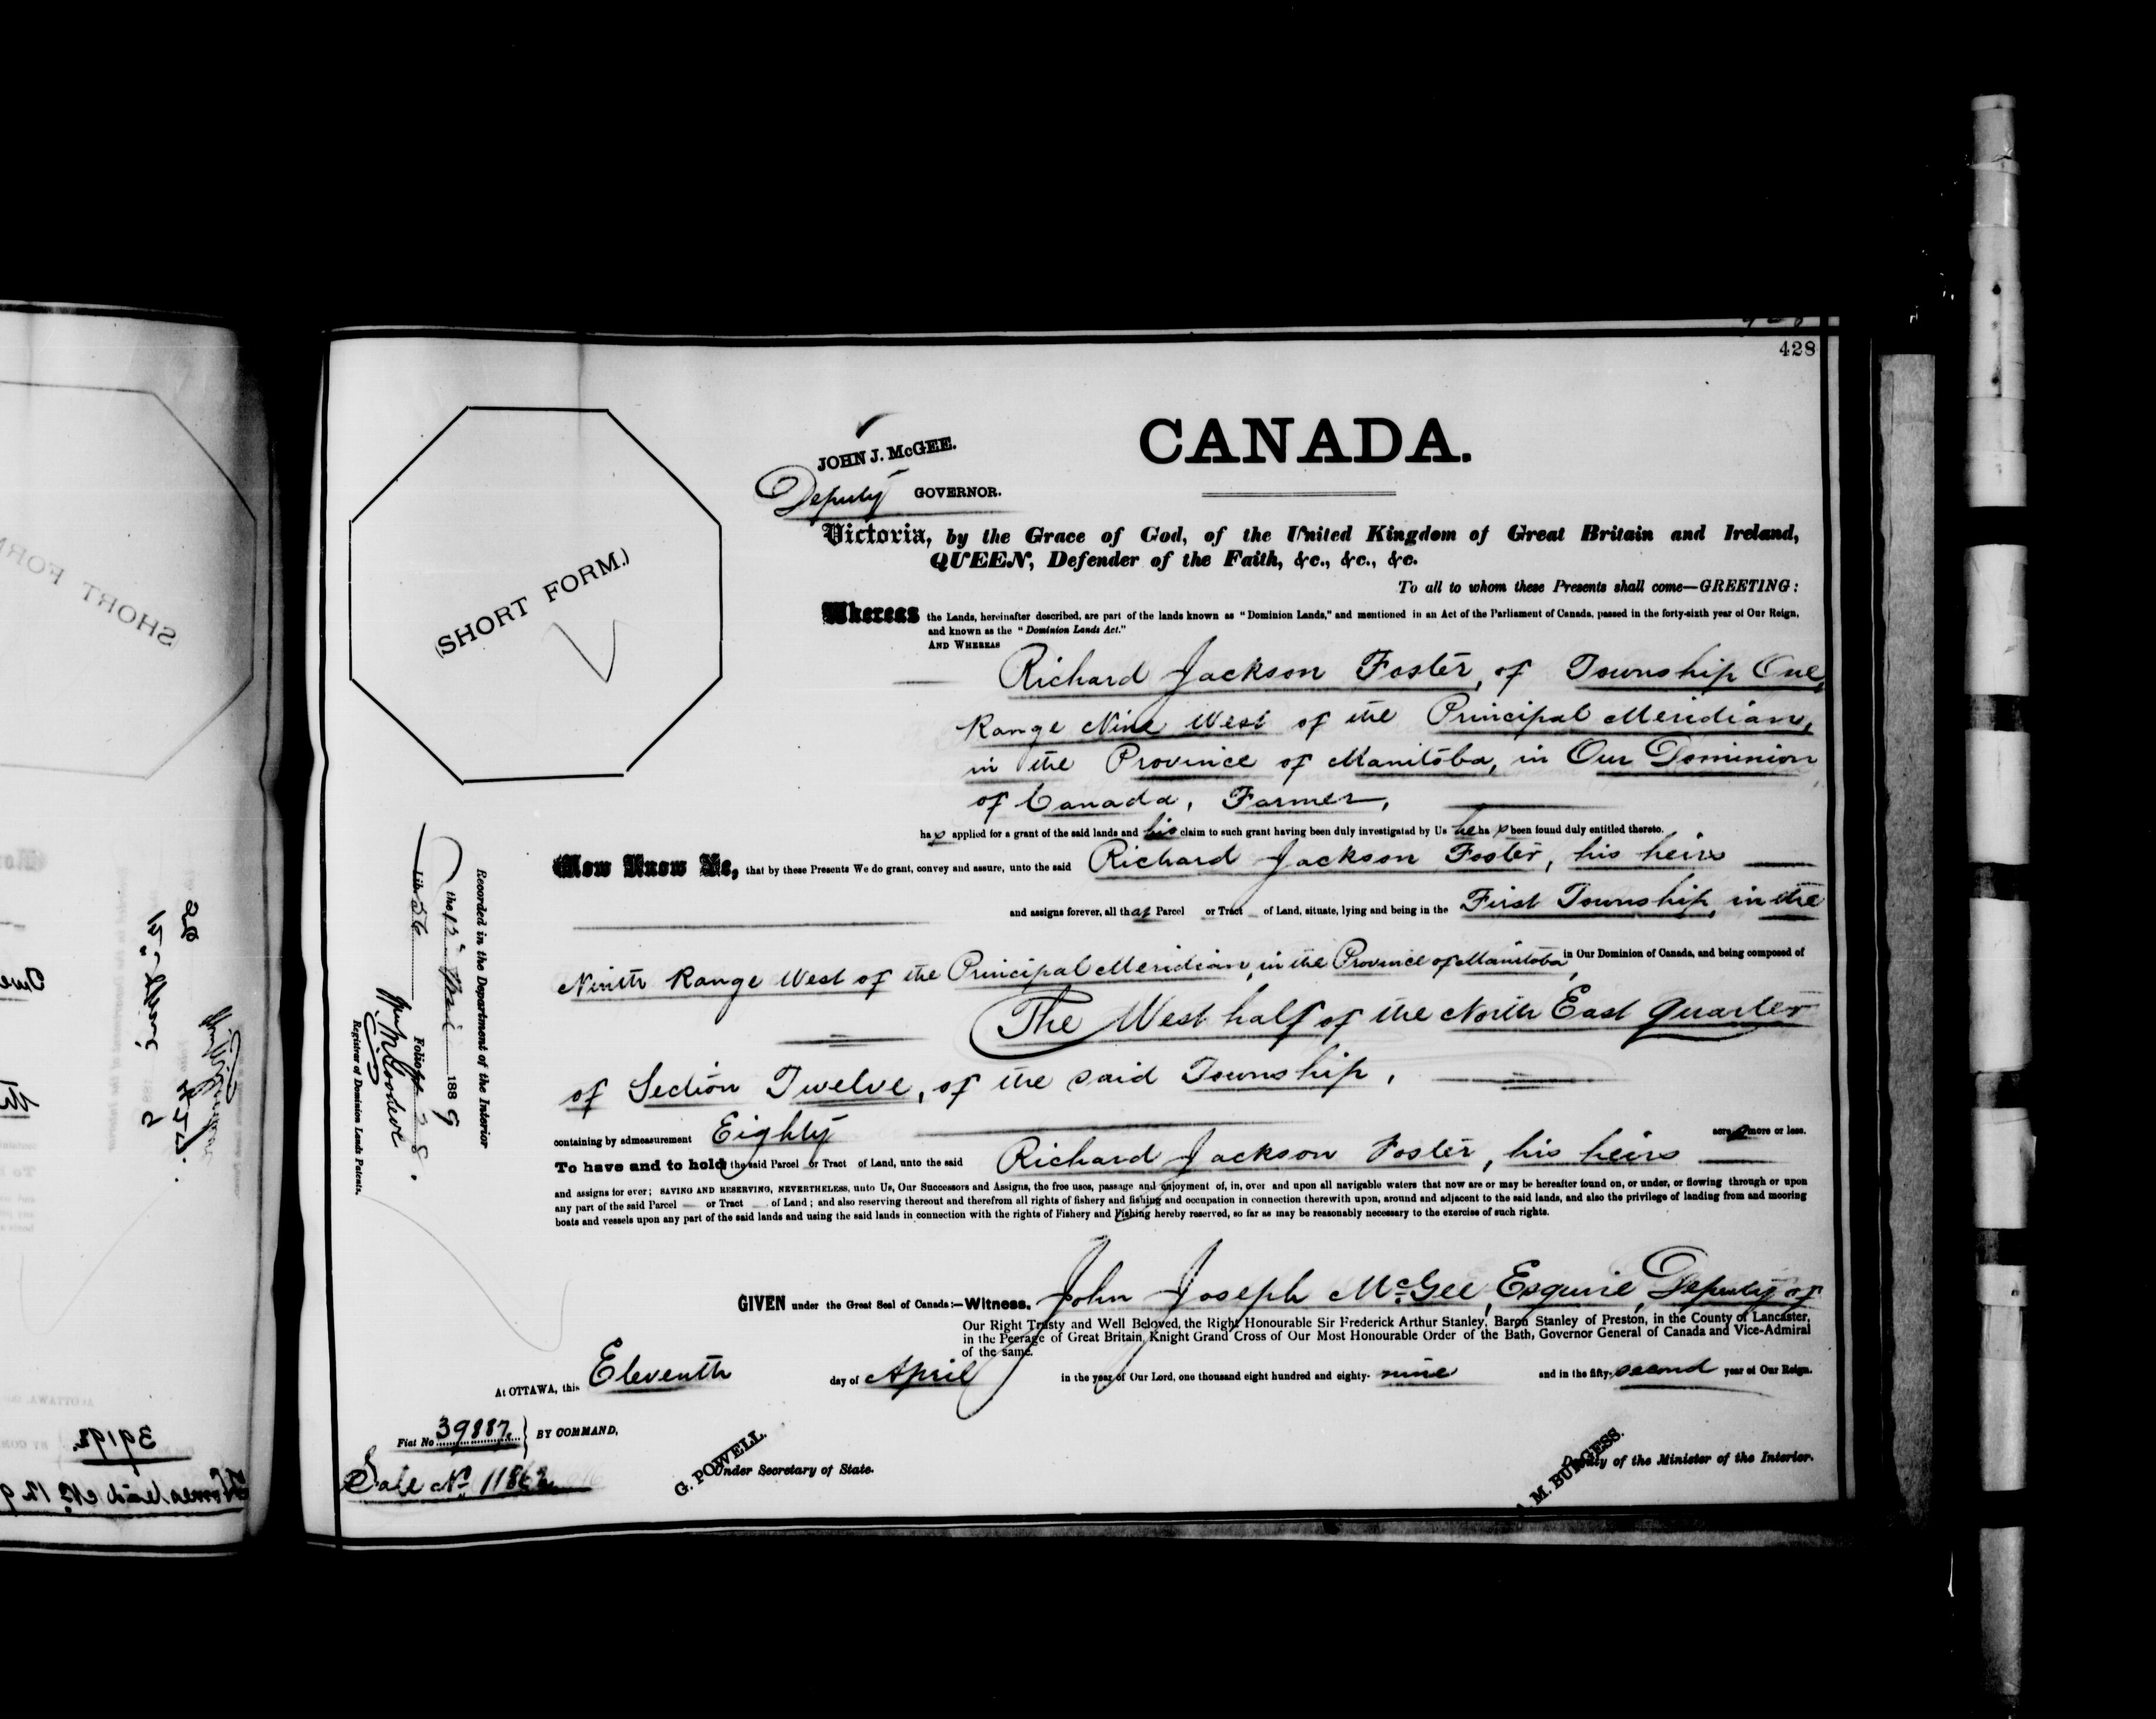 428
CANADA.
JOHN J. McGEE.
Deputy GOVERNOR.
(SHORT FORM.)
Victoria, by the Grace of God, of the United Kingdom of Great Britain and Ireland,
QUEEN, Defender of the Faith, &c., &c., &c.
To all to whom these Presents shall come—GREETING:
Whereas the Lands, hereinafter described, are part of the lands known as "Dominion Lands," and mentioned in an Act of the Parliament of Canada, passed in the forty-sixth year of Our Reign,
and known as the "Dominion Lands Act."
AND WHEREAS
Richard Jackson Foster, of Township One,
Range Nine West of the Principal Meridian,
in the Province of Manitoba, in Our Dominion
of Canada, Farmer,
has applied for a grant of the said lands and his claim to such grant having been duly investigated by Us he has been found duly entitled thereto.
Now Know Ye, that by these Presents We do grant, convey and assure, unto the said Richard Jackson Foster, his heirs
and assigns forever, all that Parcel or Tract of Land, situate, lying and being in the First Township, in the
Ninth Range West of the Principal Meridian, in the Province of Manitoba, in Our Dominion of Canada, and being composed of
The West half of the North East quarter
of Section Twelve, of the said Township,
containing by admeasurement Eighty acres more or less.
To have and to hold the said Parcel or Tract of Land, unto the said Richard Jackson Foster, his heirs
and assigns for ever; SAVING AND RESERVING, NEVERTHELESS, unto Us, Our Successors and Assigns, the free uses, passage and enjoyment of, in, over and upon all navigable waters that now are or may be hereafter found on, or under, or flowing through or upon
any part of the said Parcel or Tract of Land; and also reserving thereout and therefrom all rights of fishery and fishing and occupation in connection therewith upon, around and adjacent to the said lands, and also the privilege of landing from and mooring
boats and vessels upon any part of the said lands and using the said lands in connection with the rights of Fishery and Fishing hereby reserved, so far as may be reasonably necessary to the exercise of such rights.
GIVEN under the Great Seal of Canada:—Witness, John Joseph McGee, Esquire, Deputy of
Our Right Trusty and Well Beloved, the Right Honourable Sir Frederick Arthur Stanley, Baron Stanley of Preston, in the County of Lancaster,
in the Peerage of Great Britain, Knight Grand Cross of Our Most Honourable Order of the Bath, Governor General of Canada and Vice-Admiral
of the same.
At OTTAWA, this Eleventh day of April in the year of Our Lord, one thousand eight hundred and eighty-nine and in the fifty-second year of Our Reign.
Fiat No 39887 } BY COMMAND,
Sale No 11862
G. POWELL.
Under Secretary of State.
A. M. BURGESS.
Deputy of the Minister of the Interior.
Recorded in the Department of the Interior
the 1889
Lib 56 Folio 428.
Registrar of Dominion Lands Patents.
SHORT FORM
39192